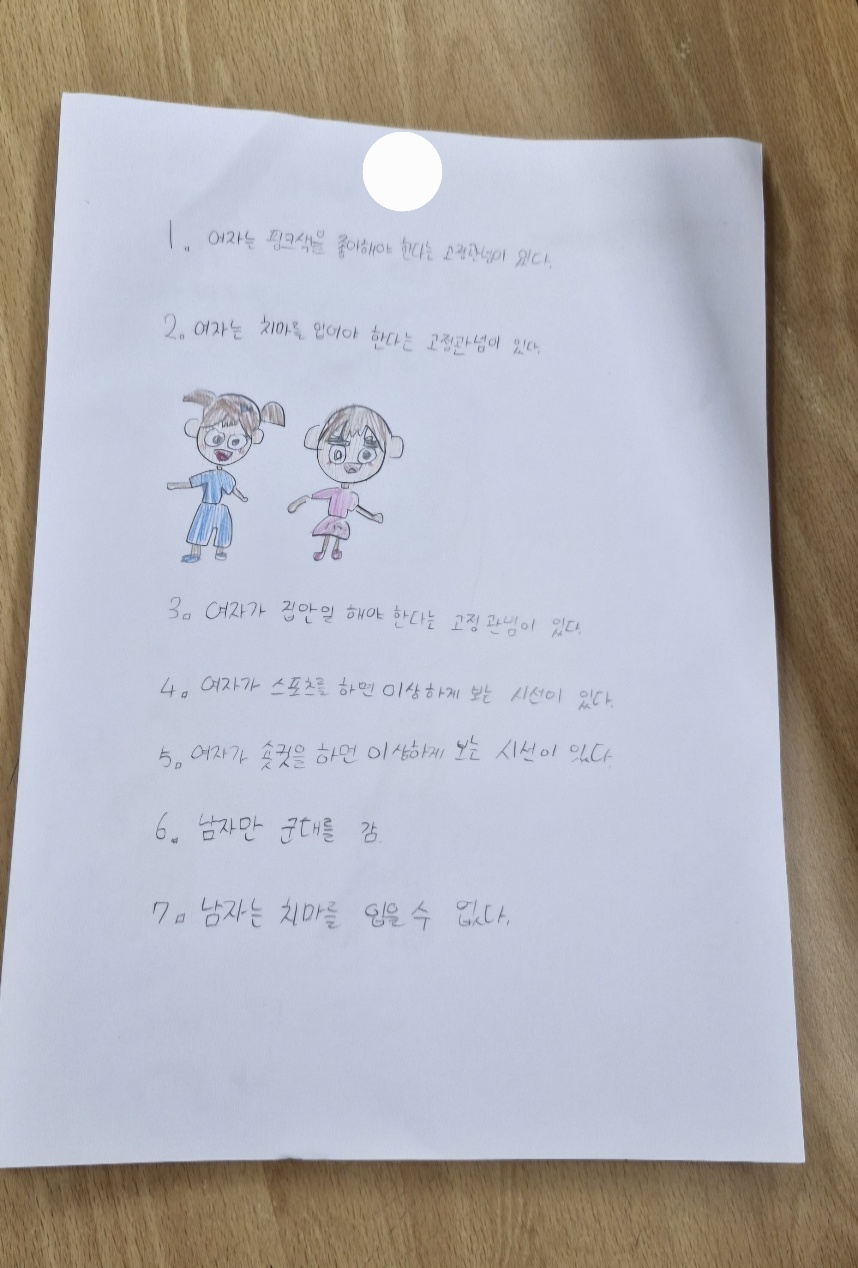 1. 여자는 핑크색을 좋아해야 한다는 고정관념이 있다.
2. 여자는 치마를 입어야 한다는 고정관념이 있다.
3. 여자가 집안일 해야 한다는 고정관념이 있다.
4. 여자가 스포츠를 하면 이상하게 보는 시선이 있다.
5. 여자가 숏컷을 하면 이상하게 보는 시선이 있다.
6. 남자만 군대를 감.
7. 남자는 치마를 입을 수 없다.